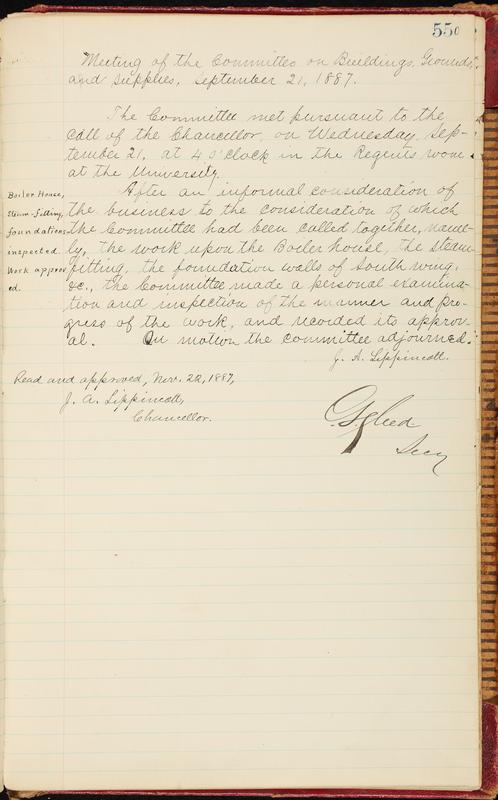 550
Meeting of the Committee on Buildings, Grounds,
and Supplies, September 21, 1887.
The Committee met pursuant to the
call of the Chancellor, on Wednesday, Sep-
tember 21, at 4 o'clock in the Regents room
at the University.
After an informal consideration of
the business to the consideration of which
the Committee had been called together, name-
ly, the work upon the Boiler house, the steam
fitting, the foundation walls of South wing,
&c., the Committee made a personal examina-
tion and inspection of the manner and pro-
gress of the work, and recorded its approv-
al. On motion the committee adjourned.
J. A. Lippincott.
Boiler House,
Steam-fitting,
foundations
inspected
Work approv
ed.
Read and approved, Nov. 22, 1887,
J. A. Lippincott,
Chancellor.
C. S. Gleed
Secy